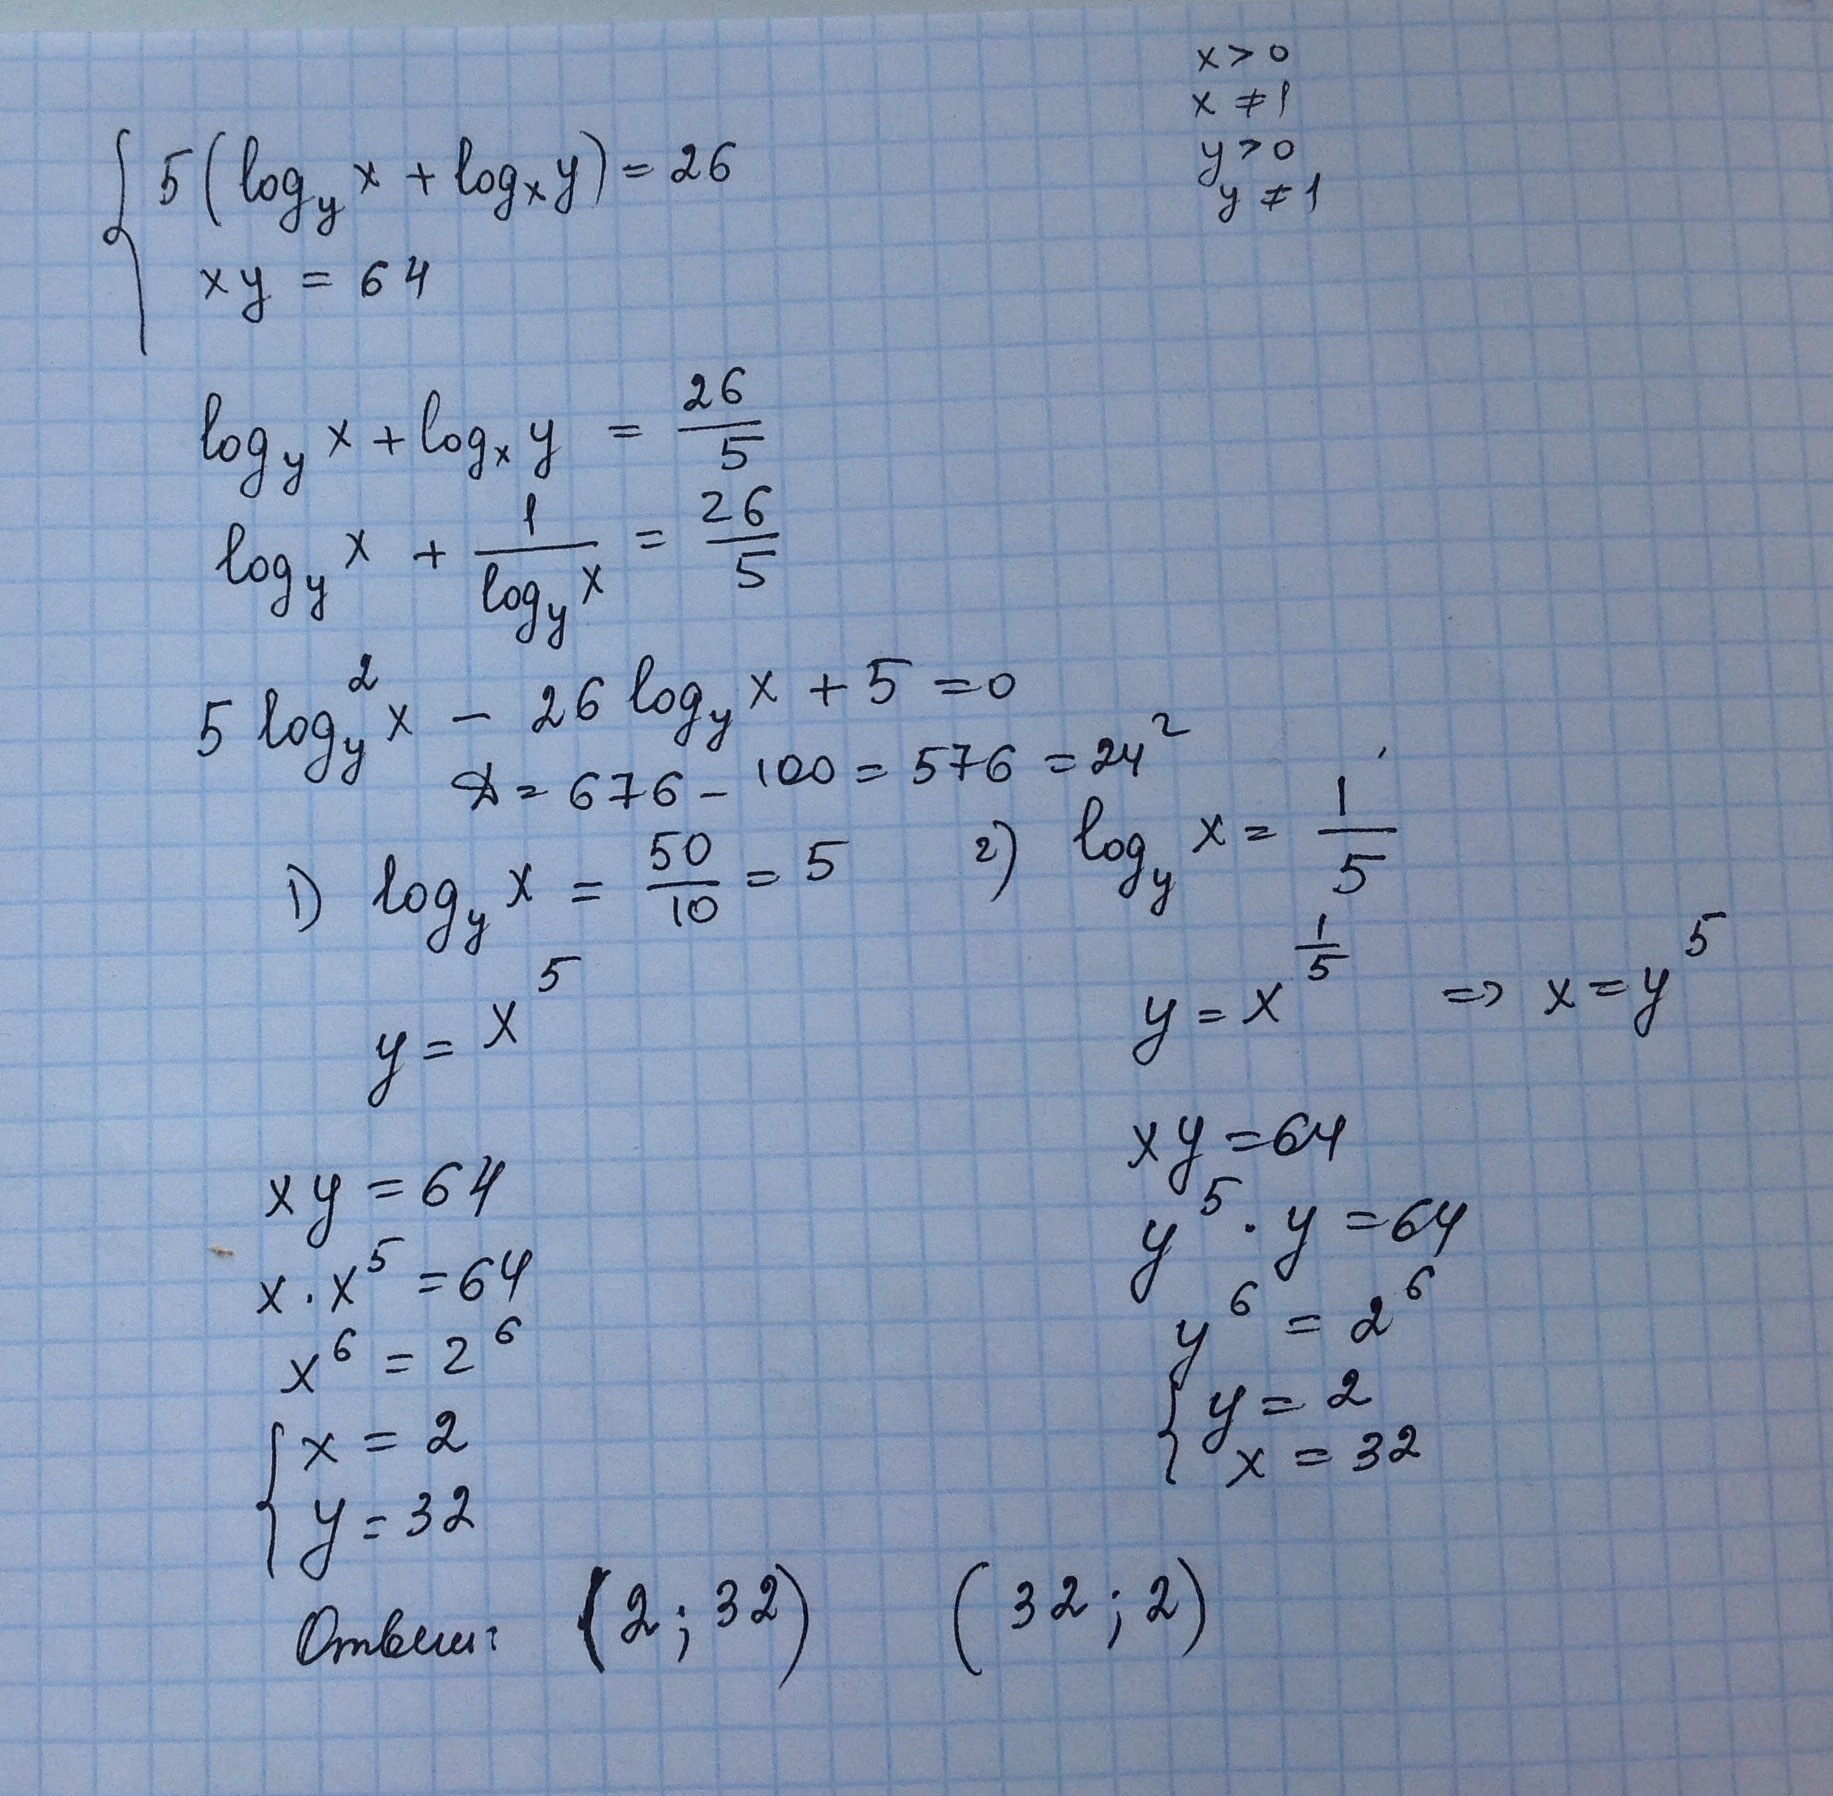 x > 0
x ≠ 1
y > 0
y ≠ 1
5(log_y x + log_x y) = 26
xy = 64
log_y x + log_x y = 26/5
log_y x + 1/(log_y x) = 26/5
5 log_y^2 x − 26 log_y x + 5 = 0
D = 676 − 100 = 576 = 24^2
1) log_y x = 50/10 = 5
y = x^5
xy = 64
x · x^5 = 64
x^6 = 2^6
x = 2
y = 32
2) log_y x = 1/5
y = x^(1/5) => x = y^5
xy = 64
y^5 · y = 64
y^6 = 2^6
y = 2
x = 32
Ответ: (2; 32) (32; 2)